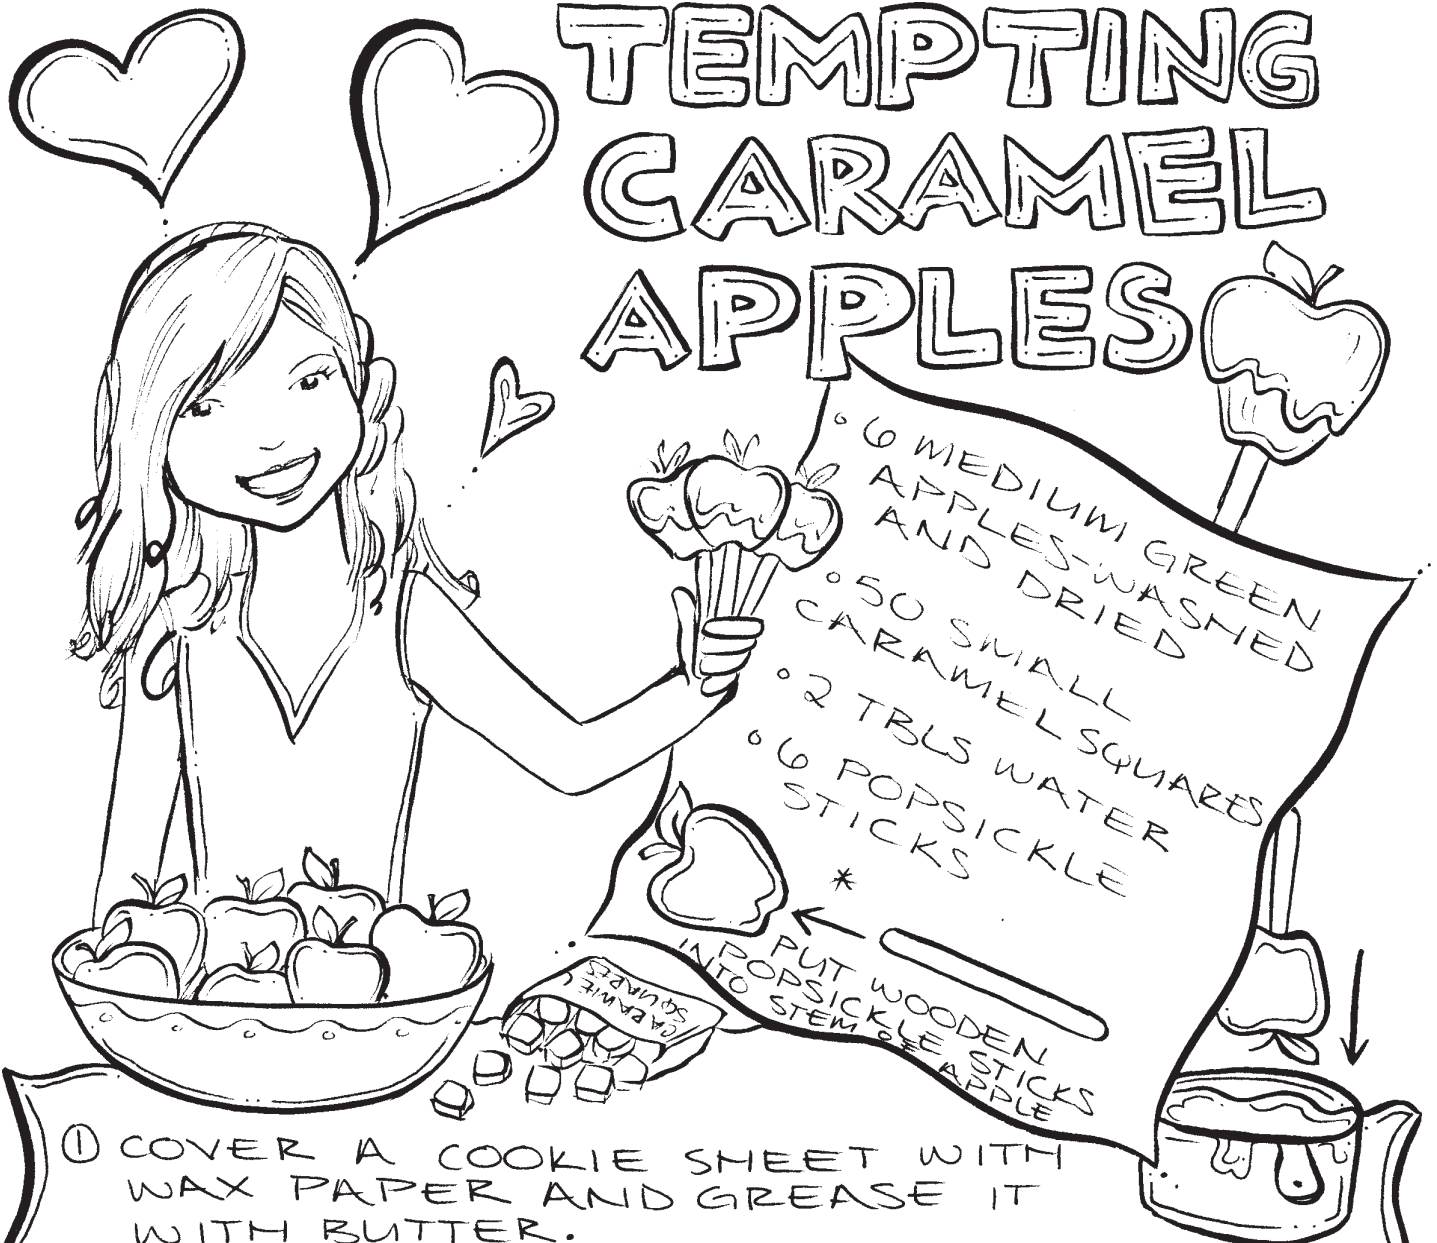 TEMPTING
CARAMEL
APPLES
° 6 MEDIUM GREEN
APPLES-WASHED
AND DRIED
° 50 SMALL
CARAMEL SQUARES
° 2 TBLS WATER
° 6 POPSICKLE
STICKS
*
PUT WOODEN
POPSICKLE STICKS
IN
INTO STEM OF APPLE
CARAMEL
SQUARES
① COVER A COOKIE SHEET WITH
WAX PAPER AND GREASE IT
WITH BUTTER.